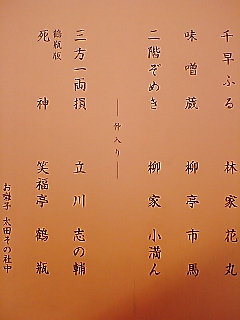 千早ふる 林家花丸
味噌蔵 柳亭市馬
二階ぞめき 柳家小満ん
――仲入り――
三方一両損 立川志の輔
鶴瓶版
死神 笑福亭鶴瓶
お囃子 太田その社中